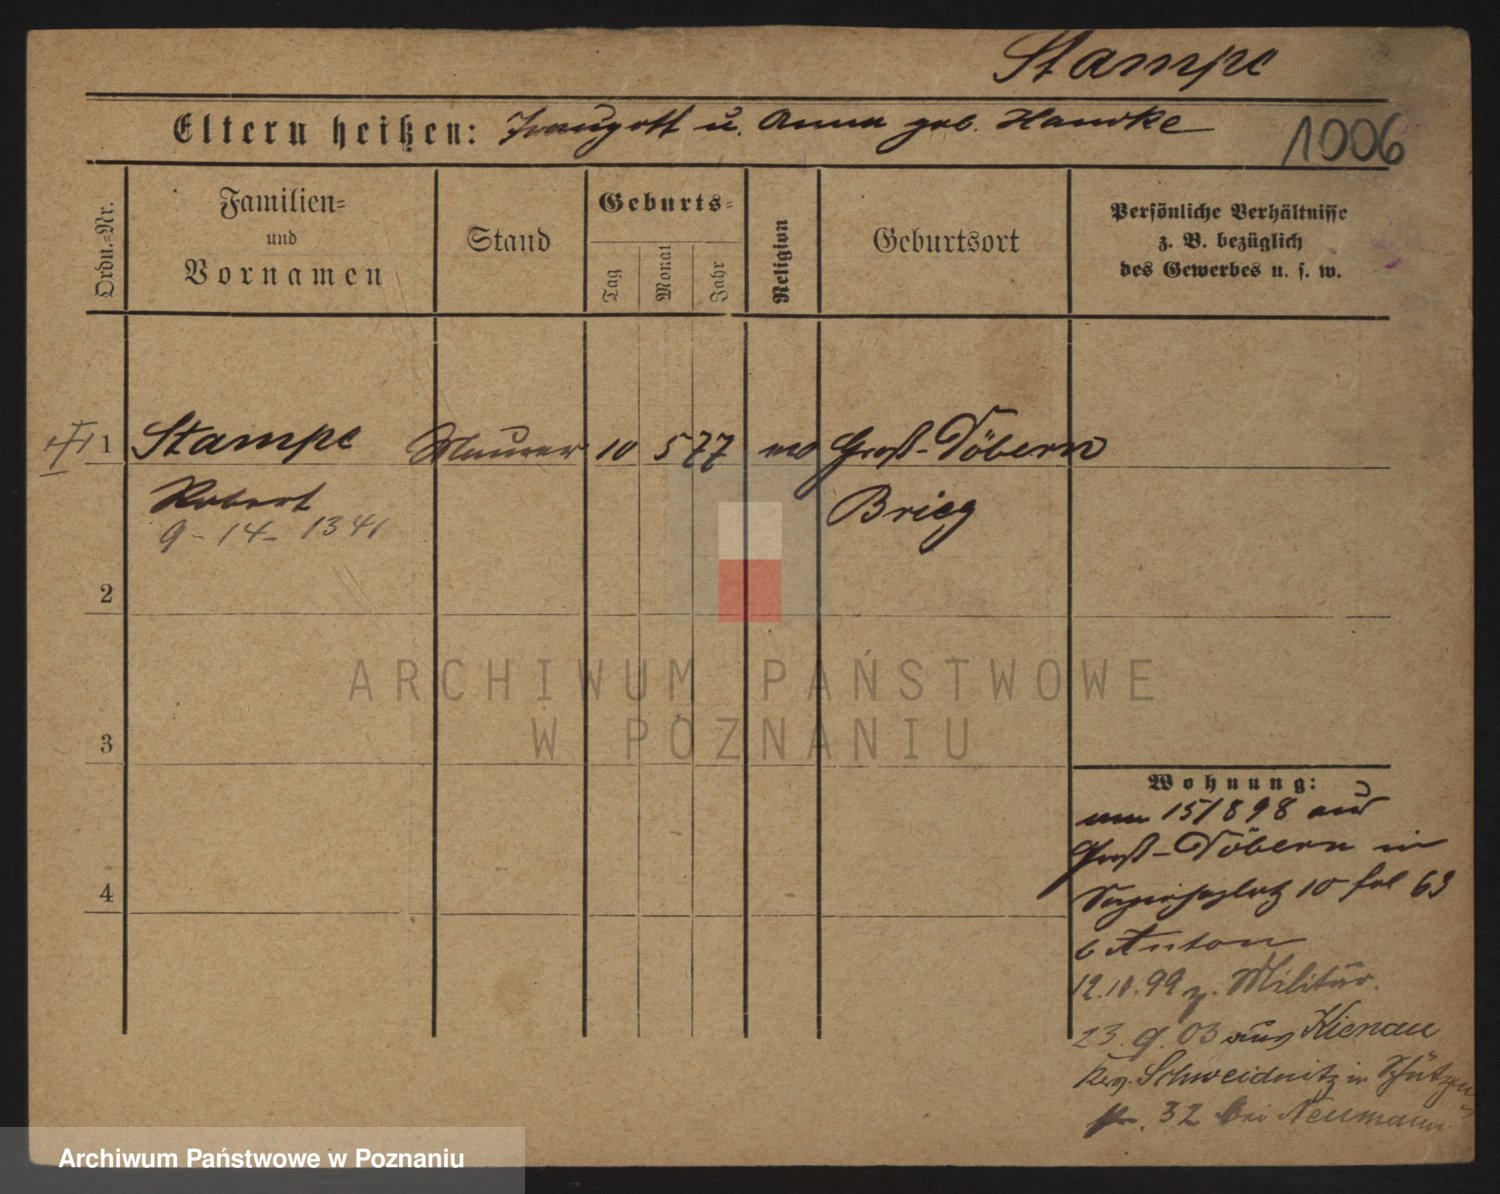 Stampe
Eltern heißen: Traugott u. Anna geb. Hancke
1006
Ordn.=Nr.
Familien=
und
Vornamen
Stand
Geburts=
Tag
Monat
Jahr
Religion
Geburtsort
Persönliche Verhältnisse
z. B. bezüglich
des Gewerbes u. s. w.
1 Stampe Maurer 10 5 77 ev Groß-Döbern
Robert Brieg
9-14-1341
2
3
4
Wohnung:
15/8 98 aus
Groß-Döbern in
10 63
b Anton
12.10.99 z. Militär.
23.9.03 aus Kienau
Krs. Schweidnitz in Schützen
str. 32 bei Neumann
ARCHIWUM PAŃSTWOWE
W POZNANIU
Archiwum Państwowe w Poznaniu